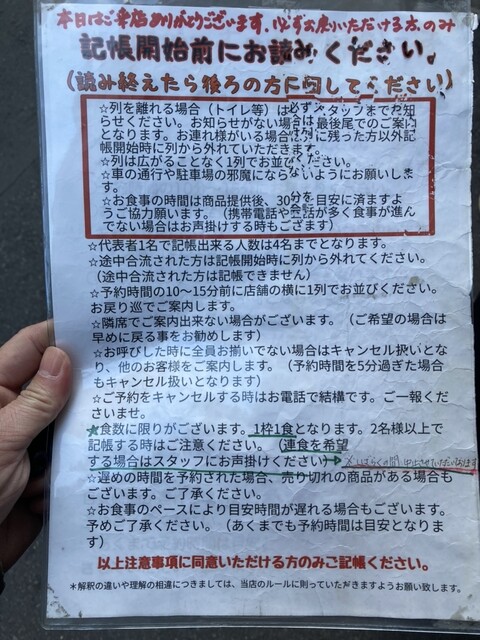 本日はご来店ありがとうございます。必ずお戻りいただける方のみ
記帳開始前にお読みください。
(読み終えたら後ろの方に回してください)
☆列を離れる場合（トイレ等）は必ずスタッフまでお知
らせください。お知らせがない場合は最後尾でのご案内
となります。お連れ様がいる場合は列に残った方以外記
帳開始時に列から外れていただきます。
☆列は広がることなく1列でお並びください。
☆車の通行や駐車場の邪魔にならないようにお願いしま
す。
☆お食事の時間は商品提供後、30分を目安に済ますよ
うご協力願います。（携帯電話や会話が多く食事が進ん
でない場合はお声掛けする時もござます）
☆代表者1名で記帳出来る人数は4名までとなります。
☆途中合流された方は記帳開始時に列から外れてください。
（途中合流された方は記帳できません）
☆予約時間の10～15分前に店舗の横に1列でお並びください。
お戻り巡でご案内します。
☆隣席でご案内出来ない場合がございます。（ご希望の場合は
早めに戻る事をお勧めします）
☆お呼びした時に全員お揃いでない場合はキャンセル扱いとな
り、他のお客様をご案内します。（予約時間を5分過ぎた場合
もキャンセル扱いとなります）
☆ご予約をキャンセルする時はお電話で結構です。ご一報くだ
さいませ。
★食数に限りがございます。1枠1食となります。2名様以上で
記帳する時はご注意ください。（連食を希望
する場合はスタッフにお声掛けください）→
☆遅めの時間を予約された場合、売り切れの商品がある場合も
ございます。ご了承ください。
☆お食事のペースにより目安時間が遅れる場合もございます。
予めご了承ください。（あくまでも予約時間は目安となりま
す）
以上注意事項に同意いただける方のみご記帳ください。
＊解釈の違いや理解の相違につきましては、当店のルールに則っていただきますようお願い致します。